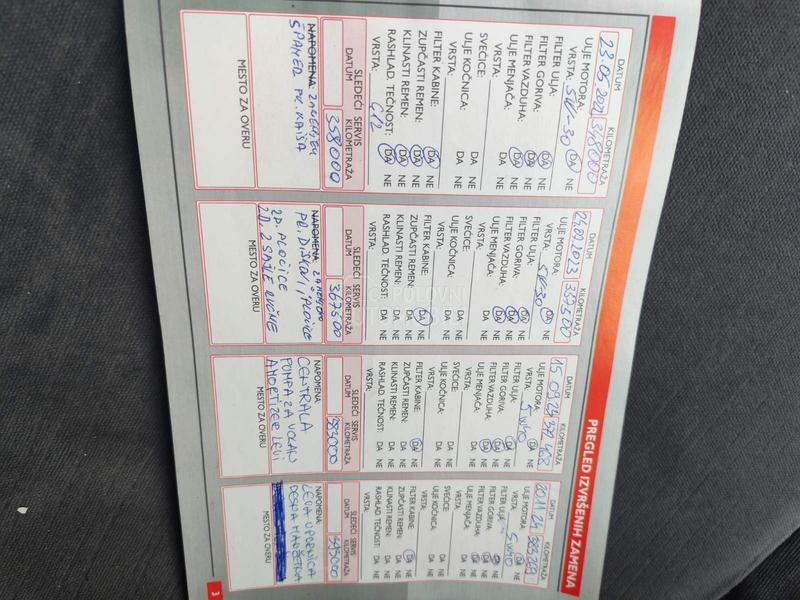 PREGLED IZVRŠENIH ZAMENA
DATUM KILOMETRAŽA
348000
ULJE MOTORA: DA NE
VRSTA: 5W-30
FILTER ULJA: DA NE
FILTER GORIVA: DA NE
FILTER VAZDUHA: DA NE
ULJE MENJAČA: DA NE
VRSTA:
SVEĆICE: DA NE
ULJE KOČNICA: DA NE
VRSTA:
FILTER KABINE: DA NE
ZUPČASTI REMEN: DA NE
KLINASTI REMEN: DA NE
RASHLAD. TEČNOST: DA NE
VRSTA: G12
SLEDEĆI SERVIS
DATUM KILOMETRAŽA
358000
NAPOMENA: ZAMENJEN
ŠPANER PK. KAIŠA
MESTO ZA OVERU
DATUM KILOMETRAŽA
357500
ULJE MOTORA: DA NE
VRSTA: 5W-30
FILTER ULJA: DA NE
FILTER GORIVA: DA NE
FILTER VAZDUHA: DA NE
ULJE MENJAČA: DA NE
VRSTA:
SVEĆICE: DA NE
ULJE KOČNICA: DA NE
VRSTA:
FILTER KABINE: DA NE
ZUPČASTI REMEN: DA NE
KLINASTI REMEN: DA NE
RASHLAD. TEČNOST: DA NE
VRSTA:
SLEDEĆI SERVIS
DATUM KILOMETRAŽA
367500
NAPOMENA:
PR. DISKOVI, i PLOČICE
ZD. PLOČICE
ZD. 2 SAJLE RUČNE
MESTO ZA OVERU
DATUM KILOMETRAŽA
15 09 23 372 468
ULJE MOTORA: DA NE
VRSTA: 5W40
FILTER ULJA: DA NE
FILTER GORIVA: DA NE
FILTER VAZDUHA: DA NE
ULJE MENJAČA: DA NE
VRSTA:
SVEĆICE: DA NE
ULJE KOČNICA: DA NE
VRSTA:
FILTER KABINE: DA NE
ZUPČASTI REMEN: DA NE
KLINASTI REMEN: DA NE
RASHLAD. TEČNOST: DA NE
VRSTA:
SLEDEĆI SERVIS
DATUM KILOMETRAŽA
383000
NAPOMENA:
CENTRALA
PUMPA ZA VOLAN
AMORTIZER LEVI
MESTO ZA OVERU
DATUM KILOMETRAŽA
20 11 24
ULJE MOTORA: DA NE
VRSTA: 5W40
FILTER ULJA: DA NE
FILTER GORIVA: DA NE
FILTER VAZDUHA: DA NE
ULJE MENJAČA: DA NE
VRSTA:
SVEĆICE: DA NE
ULJE KOČNICA: DA NE
VRSTA:
FILTER KABINE: DA NE
ZUPČASTI REMEN: DA NE
KLINASTI REMEN: DA NE
RASHLAD. TEČNOST: DA NE
VRSTA:
SLEDEĆI SERVIS
DATUM KILOMETRAŽA
NAPOMENA:
LEVA UPORNICA
DESNA MANŽETNA
MESTO ZA OVERU
3
POLOVNI